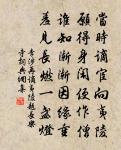 當時謫宦向夷陵
願得身閒便作僧
誰知漸漸因緣重
羞見長燃一盞燈
李涉再謫夷陵題長樂
寺詞典網集